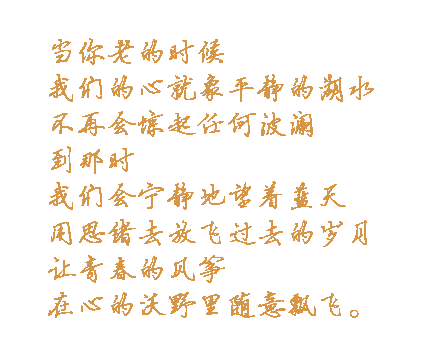 当你老的时候
我们的心就象平静的湖水
不再会惊起任何波澜
到那时
我们会宁静地望着蓝天
用思绪去放飞过去的岁月
让青春的风筝
在心的沃野里随意飘飞。